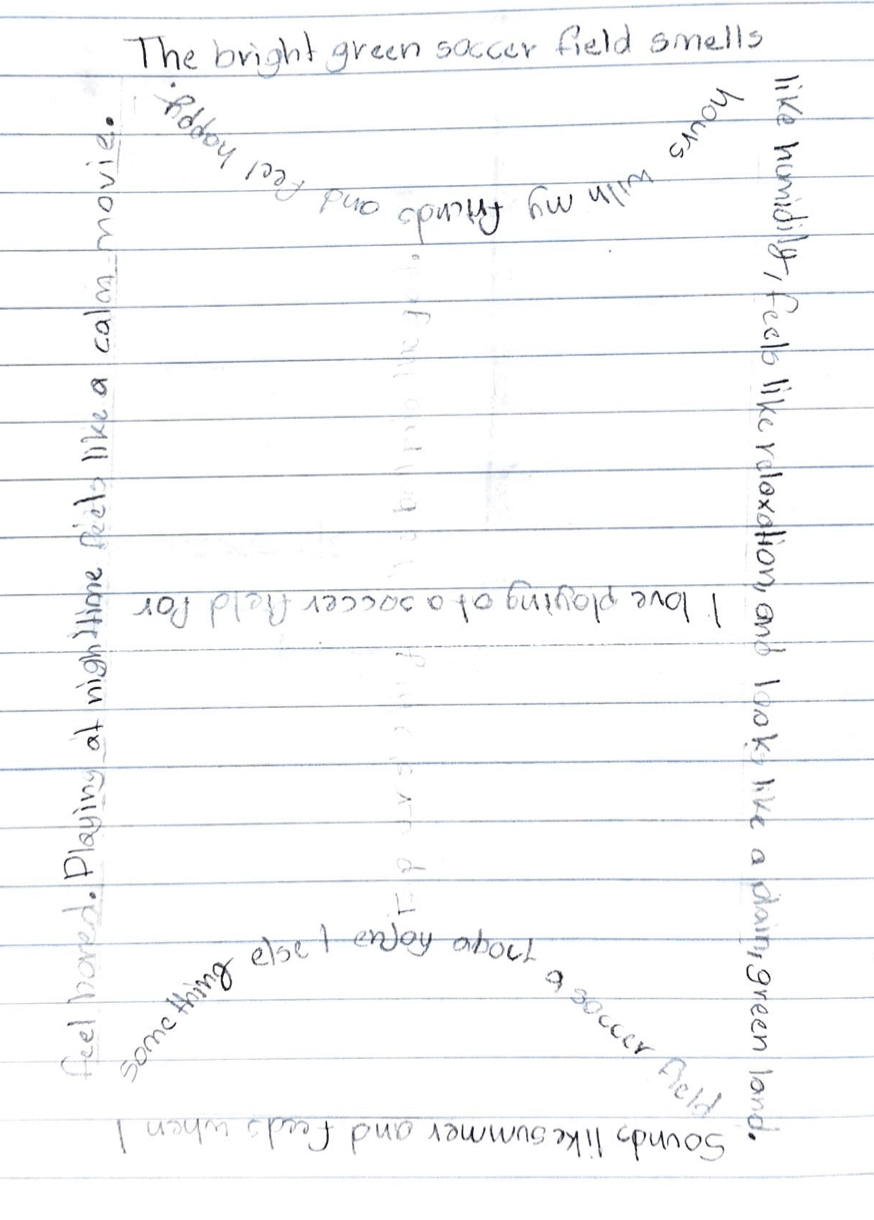 The bright green soccer field smells
like humidity, feels like relaxation, and looks like a plain, green land.
Sounds like summer and feeds when I
feel bored. Playing at nighttime feels like a calm movie.
I love playing at a soccer field for
hours with my friends and feel happy.
Something else I enjoy about a soccer field